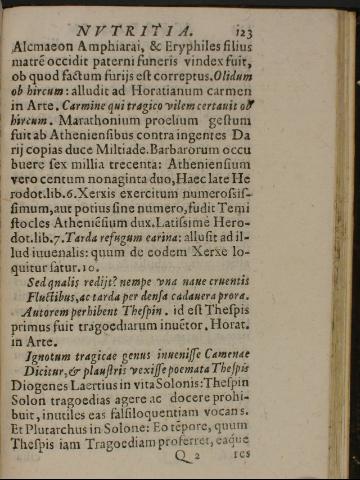 NVTRITIA. 123
Alcmaeon Amphiarai, & Eryphiles filius
matrē occidit paterni funeris vindex fuit,
ob quod factum furijs est correptus. Olidum
ob hircum: alludit ad Horatianum carmen
in Arte. Carmine qui tragico vilem certauit ob
hircum. Marathonium proelium gestum
fuit ab Atheniensibus contra ingentes Da
rij copias duce Miltiade. Barbarorum occu
buere sex millia trecenta: Atheniensium
vero centum nonaginta duo, Haec late He
rodot. lib. 6. Xerxis exercitum numerosis-
simum, aut potius sine numero, fudit Temi
stocles Atheniēsium dux. Latissimē Hero-
dot. lib. 7. Tarda refugum carina: allusit ad il-
lud iuuenalis: quum de eodem Xerxe lo-
quitur satur. 10.
Sed qualis redijt? nempe vna naue cruentis
Fluctibus, ac tarda per densa cadauera prora.
Autorem perhibent Thespin. id est Thespis
primus fuit tragoediarum inuētor. Horat.
in Arte.
Ignotum tragicae genus inuenisse Camenae
Dicitur, & plaustris vexisse poemata Thespis
Diogenes Laertius in vita Solonis: Thespin
Solon tragoedias agere ac docere prohi-
buit, inutiles eas falsiloquentiam vocans.
Et Plutarchus in Solone: Eo tēpore, quum
Thespis iam Tragoediam proferret, eaque
Q 2 res